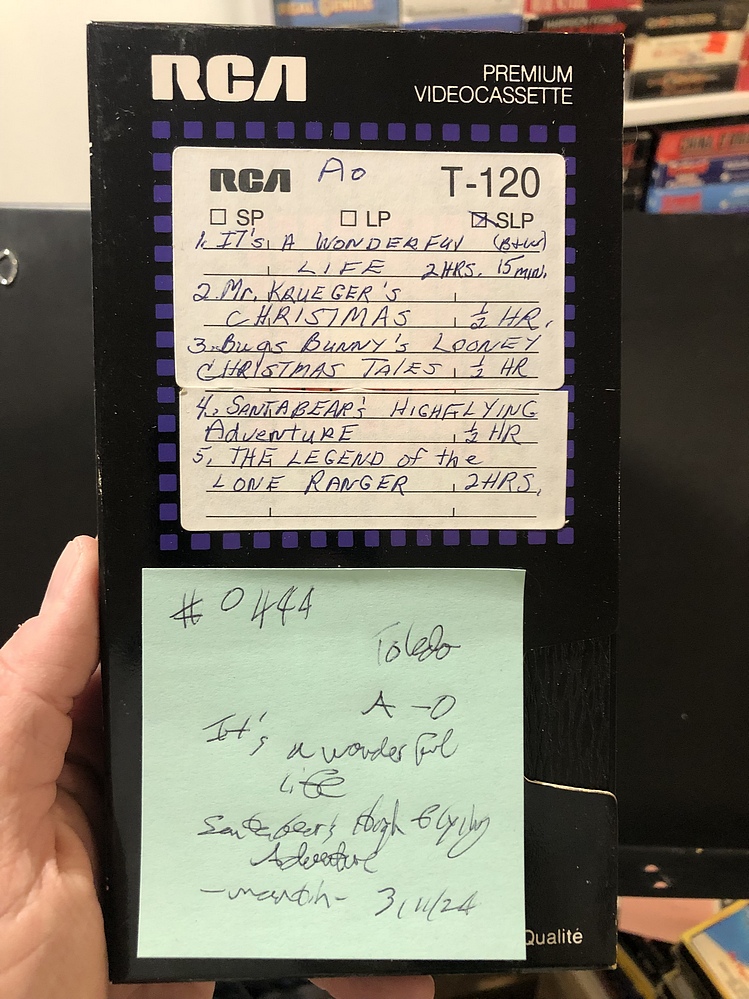 RCA
PREMIUM
VIDEOCASSETTE
RCA AO T-120
SP LP SLP
1. IT'S A WONDERFUL (B+W)
LIFE 2HRS. 15 MIN.
2. Mr. KRUEGER'S
CHRISTMAS ½ HR.
3. BUGS BUNNY'S LOONEY
CHRISTMAS TALES ½ HR
4. SANTABEAR'S HIGHFLYING
Adventure ½ HR
5. THE LEGEND of the
LONE RANGER 2HRS.
# 0444
Toledo
A-O
It's
a wonderful
life
Santabear's High Flying
Adventure
3/11/24
Qualité